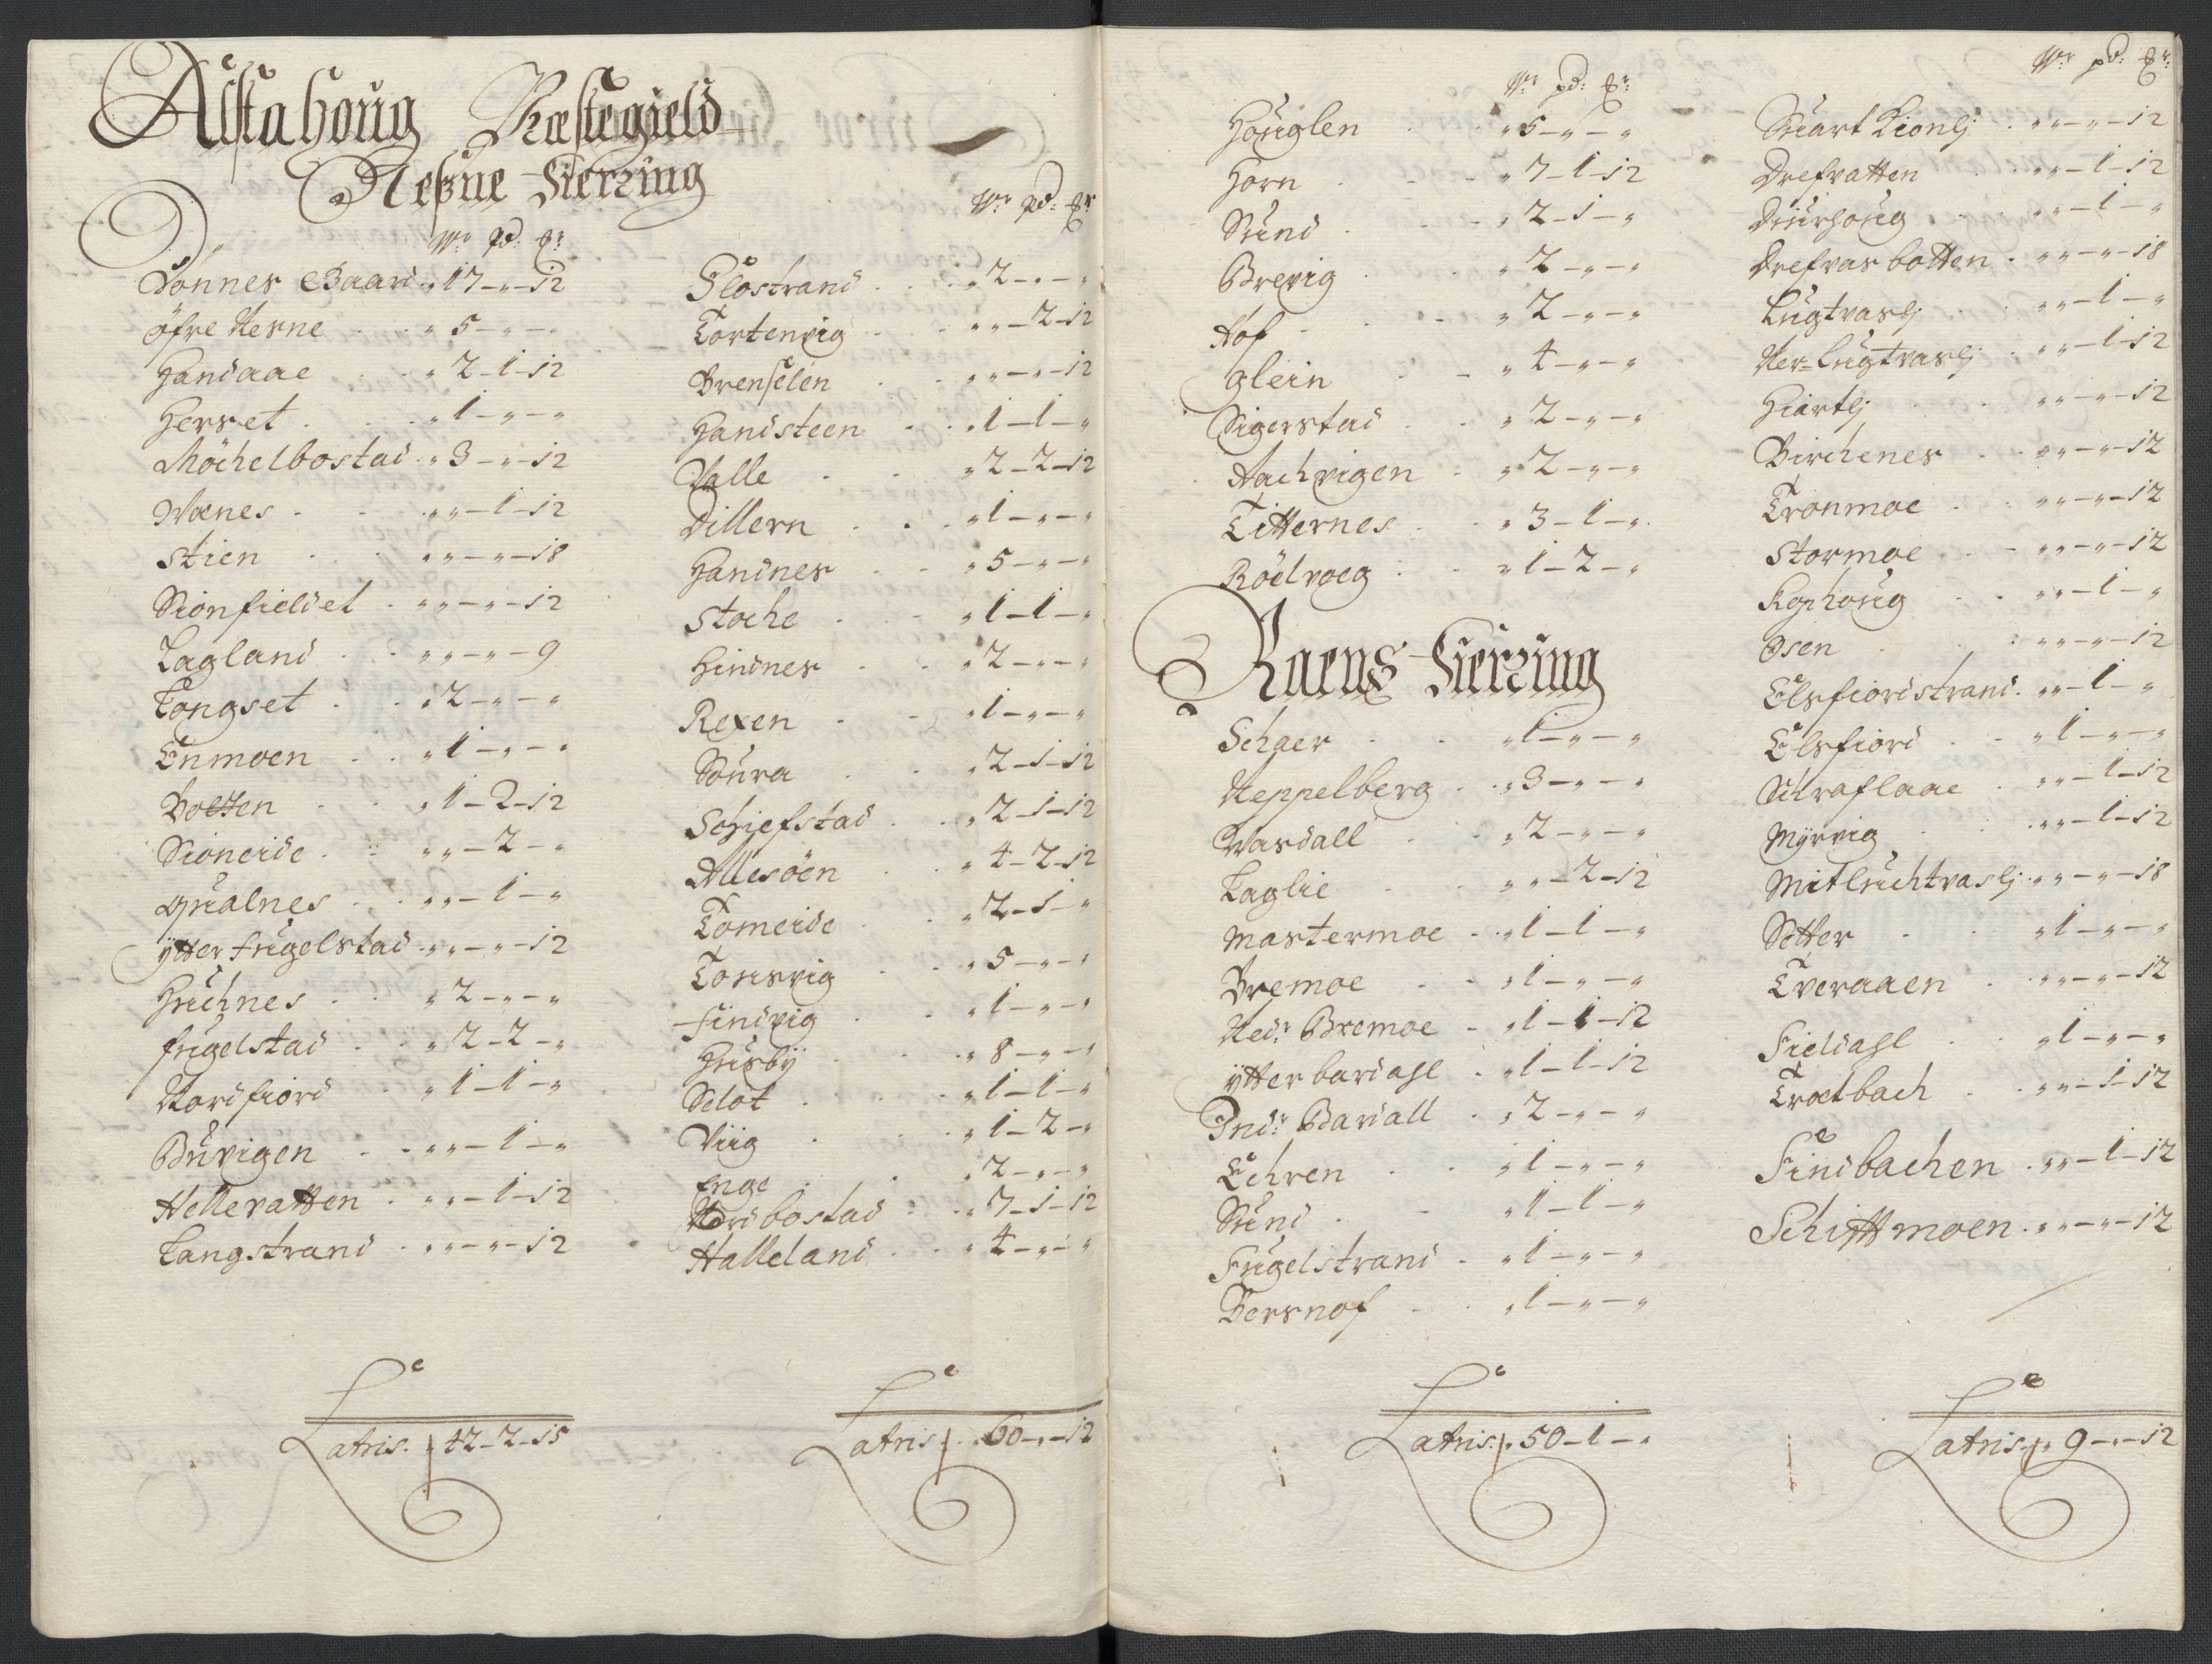 Alstahoug Præstegield
Neßne Fierzing
Wr pd: Mr:
Dönnes Gaard „ 17 - „ - 12
öfre Nesne „ 5 - „ - „
Handaae „ 2 - 1 - 12
Herset „ 1 - „ - „
Möchelbostad „ 3 - „ - 12
Wænes „ „ - 1 - 12
Stien „ „ - „ - 18
Sionfieldet „ „ - „ - 12
Lagland „ „ - „ - 9
Tongset „ 2 - „ - „
Enmoen „ 1 - „ - „
Botten „ 1 - 2 - 12
Sioneide „ „ - 2 - „
Qualnes „ „ - 1 - „
ytter fugelstad „ „ - „ - 12
Huchnes „ 2 - „ - „
fugelstad „ 2 - 2 - „
Nordfiord „ 1 - 1 - „
Buvigen „ „ - 1 - „
Hellevatten „ „ - 1 - 12
Langstrand „ „ - „ - 12
Latris „ 42 - 2 - 15
Wr pd: Mr
Slostrand „ 2 - „ - „
Tortenvig „ „ - 2 - 12
Brenselen „ „ - „ - 12
Handsteen „ 1 - 1 - „
Valle „ 2 - 2 - 12
Dillern „ 1 - „ - „
Handnes „ 5 - „ - „
Stoche „ 1 - 1 - „
Hindnes „ 2 - „ - „
Rexen „ 1 - „ - „
Soura „ 2 - 1 - 12
Schiefstad „ 2 - 1 - 12
Allesöen „ 4 - 2 - 12
Tomeide „ 2 - 1 - „
Tomsvig „ 5 - „ - „
Findvig „ 1 - „ - „
Husbÿ „ 8 - „ - „
Seløt „ 1 - 1 - „
Viig „ 1 - 2 - „
Enge „ 2 - „ - „
Nordbostad „ 7 - 1 - 12
Halleland „ 4 - „ - „
Latris „ 60 - „ - 12
Wr pd: Mr:
Houglen „ 5 - „ - „
Horn „ 7 - 1 - 12
Sund „ 2 - 1 - „
Brevig „ 2 - „ - „
Hof „ 2 - „ - „
Glein „ 4 - „ - „
Sigerstad „ 2 - „ - „
Aachvigen „ 2 - „ - „
Titternes „ 3 - 1 - „
Rödvoeg „ 1 - 2 - „
Raens Fierzing
Schaer „ 1 - „ - „
Neppelberg „ 3 - „ - „
Wasdall „ 2 - „ - „
Laglie „ „ - 2 - 12
Mastermoe „ 1 - 1 - „
Bremoe „ 1 - „ - „
Nedr Bremoe „ 1 - 1 - 12
ytter bardahl „ 1 - 1 - 12
Indr Bardall „ 2 - „ - „
Echren „ 1 - „ - „
Sund „ 1 - 1 - „
Fugelstrand „ 1 - „ - „
Bersnof „ 1 - „ - „
Latris „ 50 - 1 - „
Wr pd: Mr:
Suart Lionlj „ „ - „ - 12
Drefvatten „ „ - 1 - 12
Diurhoug „ „ - 1 - „
Drefvasbotten „ „ - „ - 18
Lugtvaslj „ „ - 1 - „
Ner-Lugtvaslj „ „ - 1 - 12
Hiartlj „ „ - „ - 12
Birchenes „ „ - „ - 12
Tronmoe „ „ - „ - 12
Stormoe „ „ - „ - 12
Kophoug „ „ - 1 - „
Osen „ „ - „ - 12
Elsfiordstrand „ „ - 1 - „
Elsfiord „ 1 - „ - „
Schraflaae „ „ - 1 - 12
Myrvig „ „ - 1 - 12
Mitluchtvaslj „ „ - „ - 18
Sætter „ 1 - „ - „
Tveraaen „ „ - „ - 12
Fieldahl „ 1 - „ - „
Trætbach „ „ - 1 - 12
Findbachen „ „ - 1 - 12
Schittmoen „ „ - „ - 12
Latris „ 9 - „ - 12